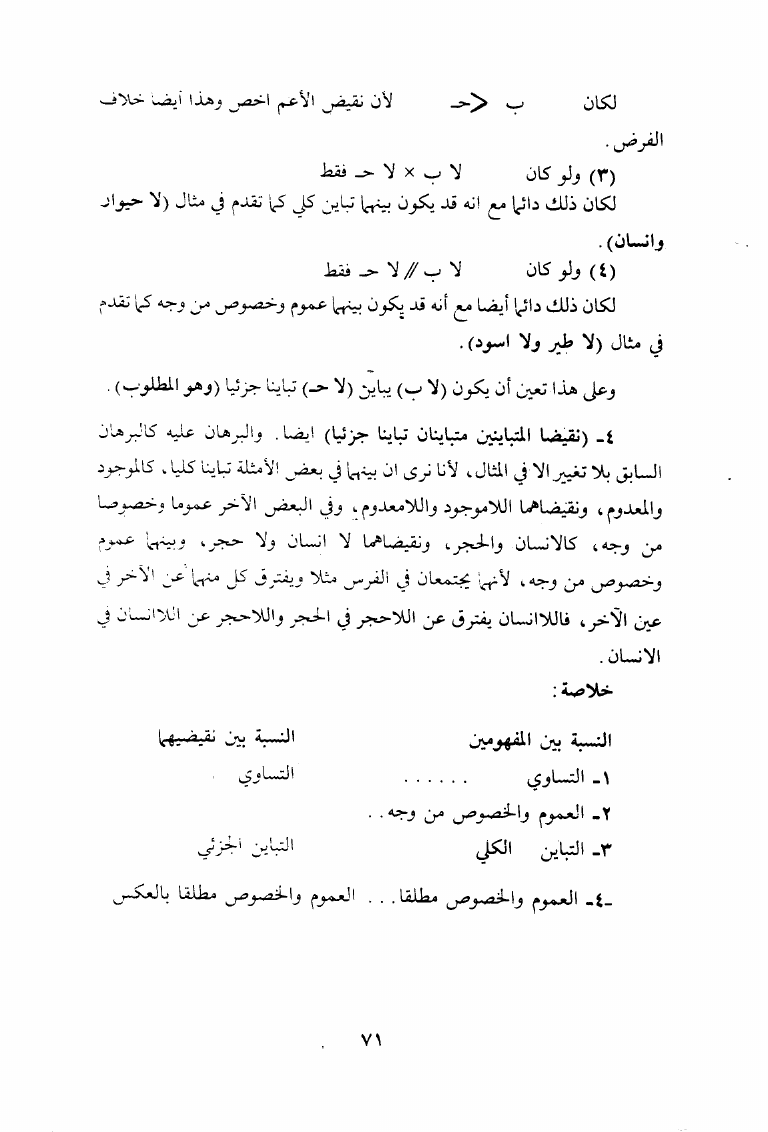 لكان ب > حـ لأن نقيض الأعم اخص وهذا أيضا خلاف
الفرض .
(٣) ولو كان لا ب × لا حـ فقط
لكان ذلك دائما مع انه قد يكون بينهما تباين كلي كما تقدم في مثال (لا حيوان
وانسان) .
(٤) ولو كان لا ب // لا حـ فقط
لكان ذلك دائما أيضا مع أنه قد يكون بينهما عموم وخصوص من وجه كما تقدم
في مثال (لا طير ولا اسود) .
وعلى هذا تعين أن يكون (لا ب) يباين (لا حـ) تباينا جزئيا (وهو المطلوب) .
٤ـ (نقيضا المتباينين متباينان تباينا جزئيا) ايضا . والبرهان عليه كالبرهان
السابق بلا تغيير الا في المثال ، لأنا نرى ان بينهما في بعض الأمثلة تباينا كليا ، كالموجود
والمعدوم ، ونقيضاهما اللاموجود واللامعدوم ، وفي البعض الآخر عموما وخصوصا
من وجه ، كالانسان والحجر ، ونقيضاهما لا انسان ولا حجر ، وبينهما عموم
وخصوص من وجه ، لأنهما يجتمعان في الفرس مثلا ويفترق كل منهما عن الآخر في
عين الآخر ، فاللاانسان يفترق عن اللاحجر في الحجر واللاحجر عن اللاانسان في
الانسان .
خلاصة :
النسبة بين المفهومين النسبة بين نقيضيهما
١ـ التساوي . . . . . . التساوي
٢ـ العموم والخصوص من وجه . .
٣ـ التباين الكلي التباين الجزئي
ـ٤ـ العموم والخصوص مطلقا . . . العموم والخصوص مطلقا بالعكس
٧١